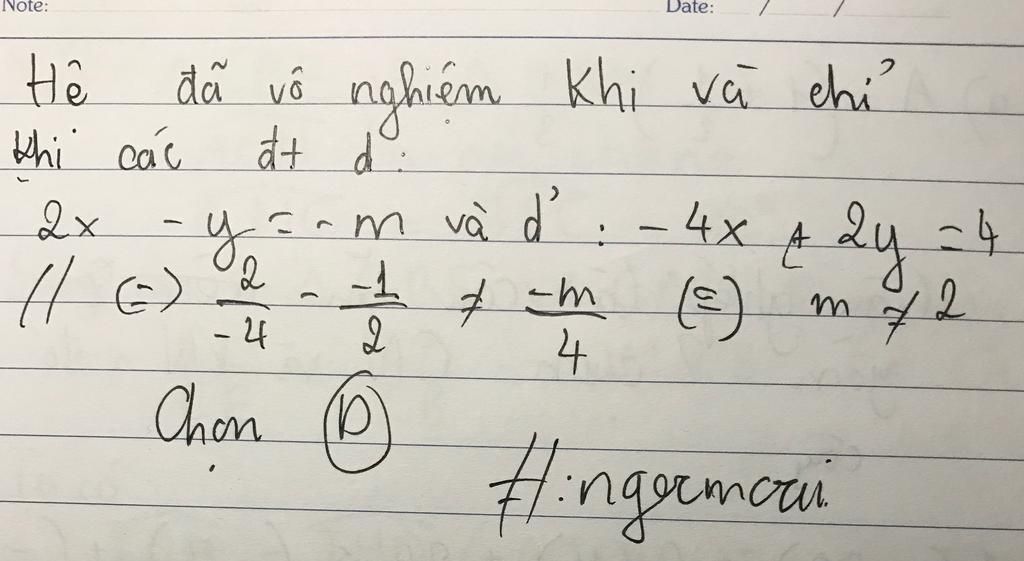 Note: Date: / /
Hê đã vô nghiệm khi và chỉ
khi các đt d:
2x - y = - m và d' : - 4x + 2y = 4
// (=) 2/-4 - -1/2 ≠ -m/4 (=) m ≠ 2
Chọn D
#:ngocmai